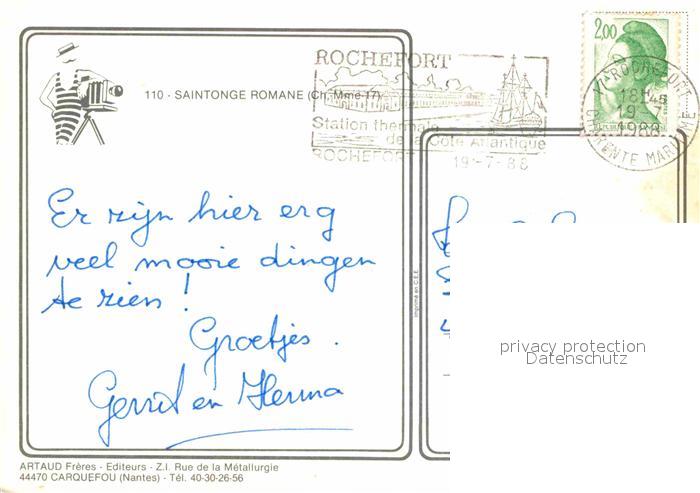 110 - SAINTONGE ROMANE (Ch. Mme-17)
ROCHEFORT
Station thermale
de la Côte Atlantique
ROCHEFORT 19-7-88
2,00
ROCHEFORT
18H45
19-7
1988
CHARENTE MARITIME
Er zijn hier erg
veel mooie dingen
te zien !
Groetjes.
Gerrit en Herma
Imprimé en C.E.E.
privacy protection
Datenschutz
ARTAUD Frères - Editeurs - Z.I. Rue de la Métallurgie
44470 CARQUEFOU (Nantes) - Tél. 40-30-26-56